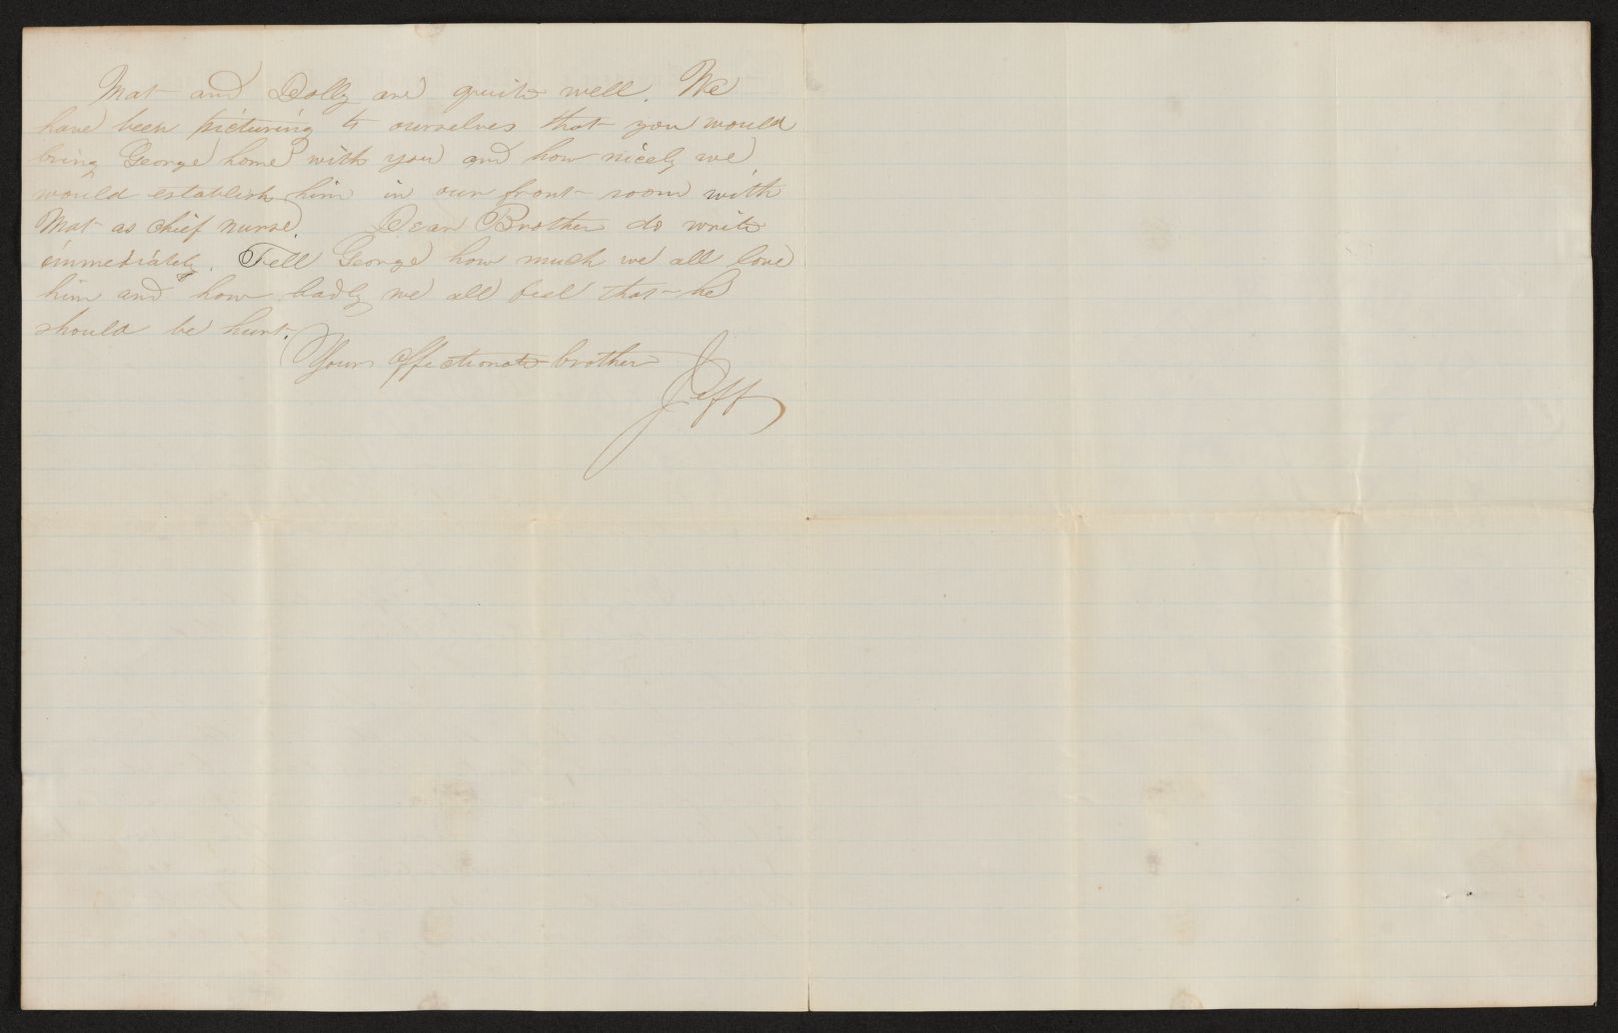 Mat and Dolly are quite well. We
have been picturing to ourselves that you would
bring George home with you and how nicely we
would establish him in our front room with
Mat as chief nurse. Dear Brother do write
immediately. Tell George how much we all love
him and how badly we all feel that he
should be hurt.
Your affectionate brother
Jeff